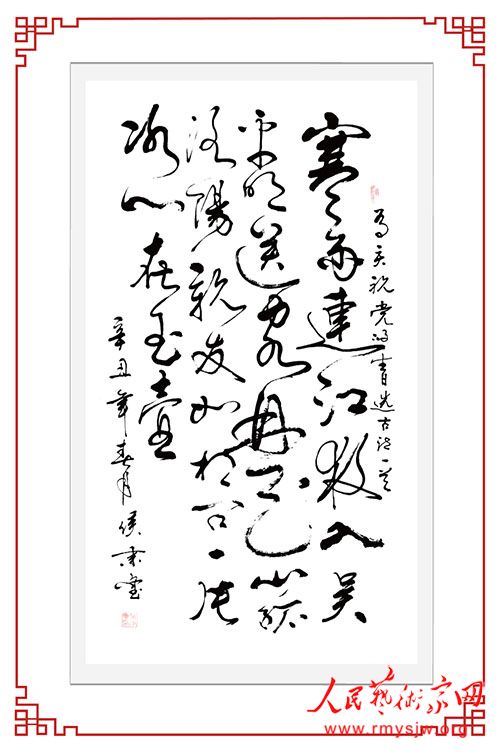 为庆祝党的生日选古诗一首
寒雨連江夜入吴
平明送客楚山孤
洛陽親友如相问一片
冰心在玉壺
辛丑年春月侯
人民藝術家网
www.rmysjw.org